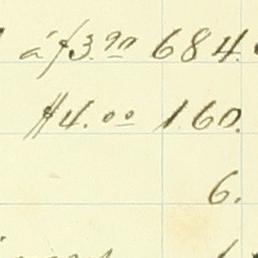 á f3.90 684.
f4.00 160.
6.